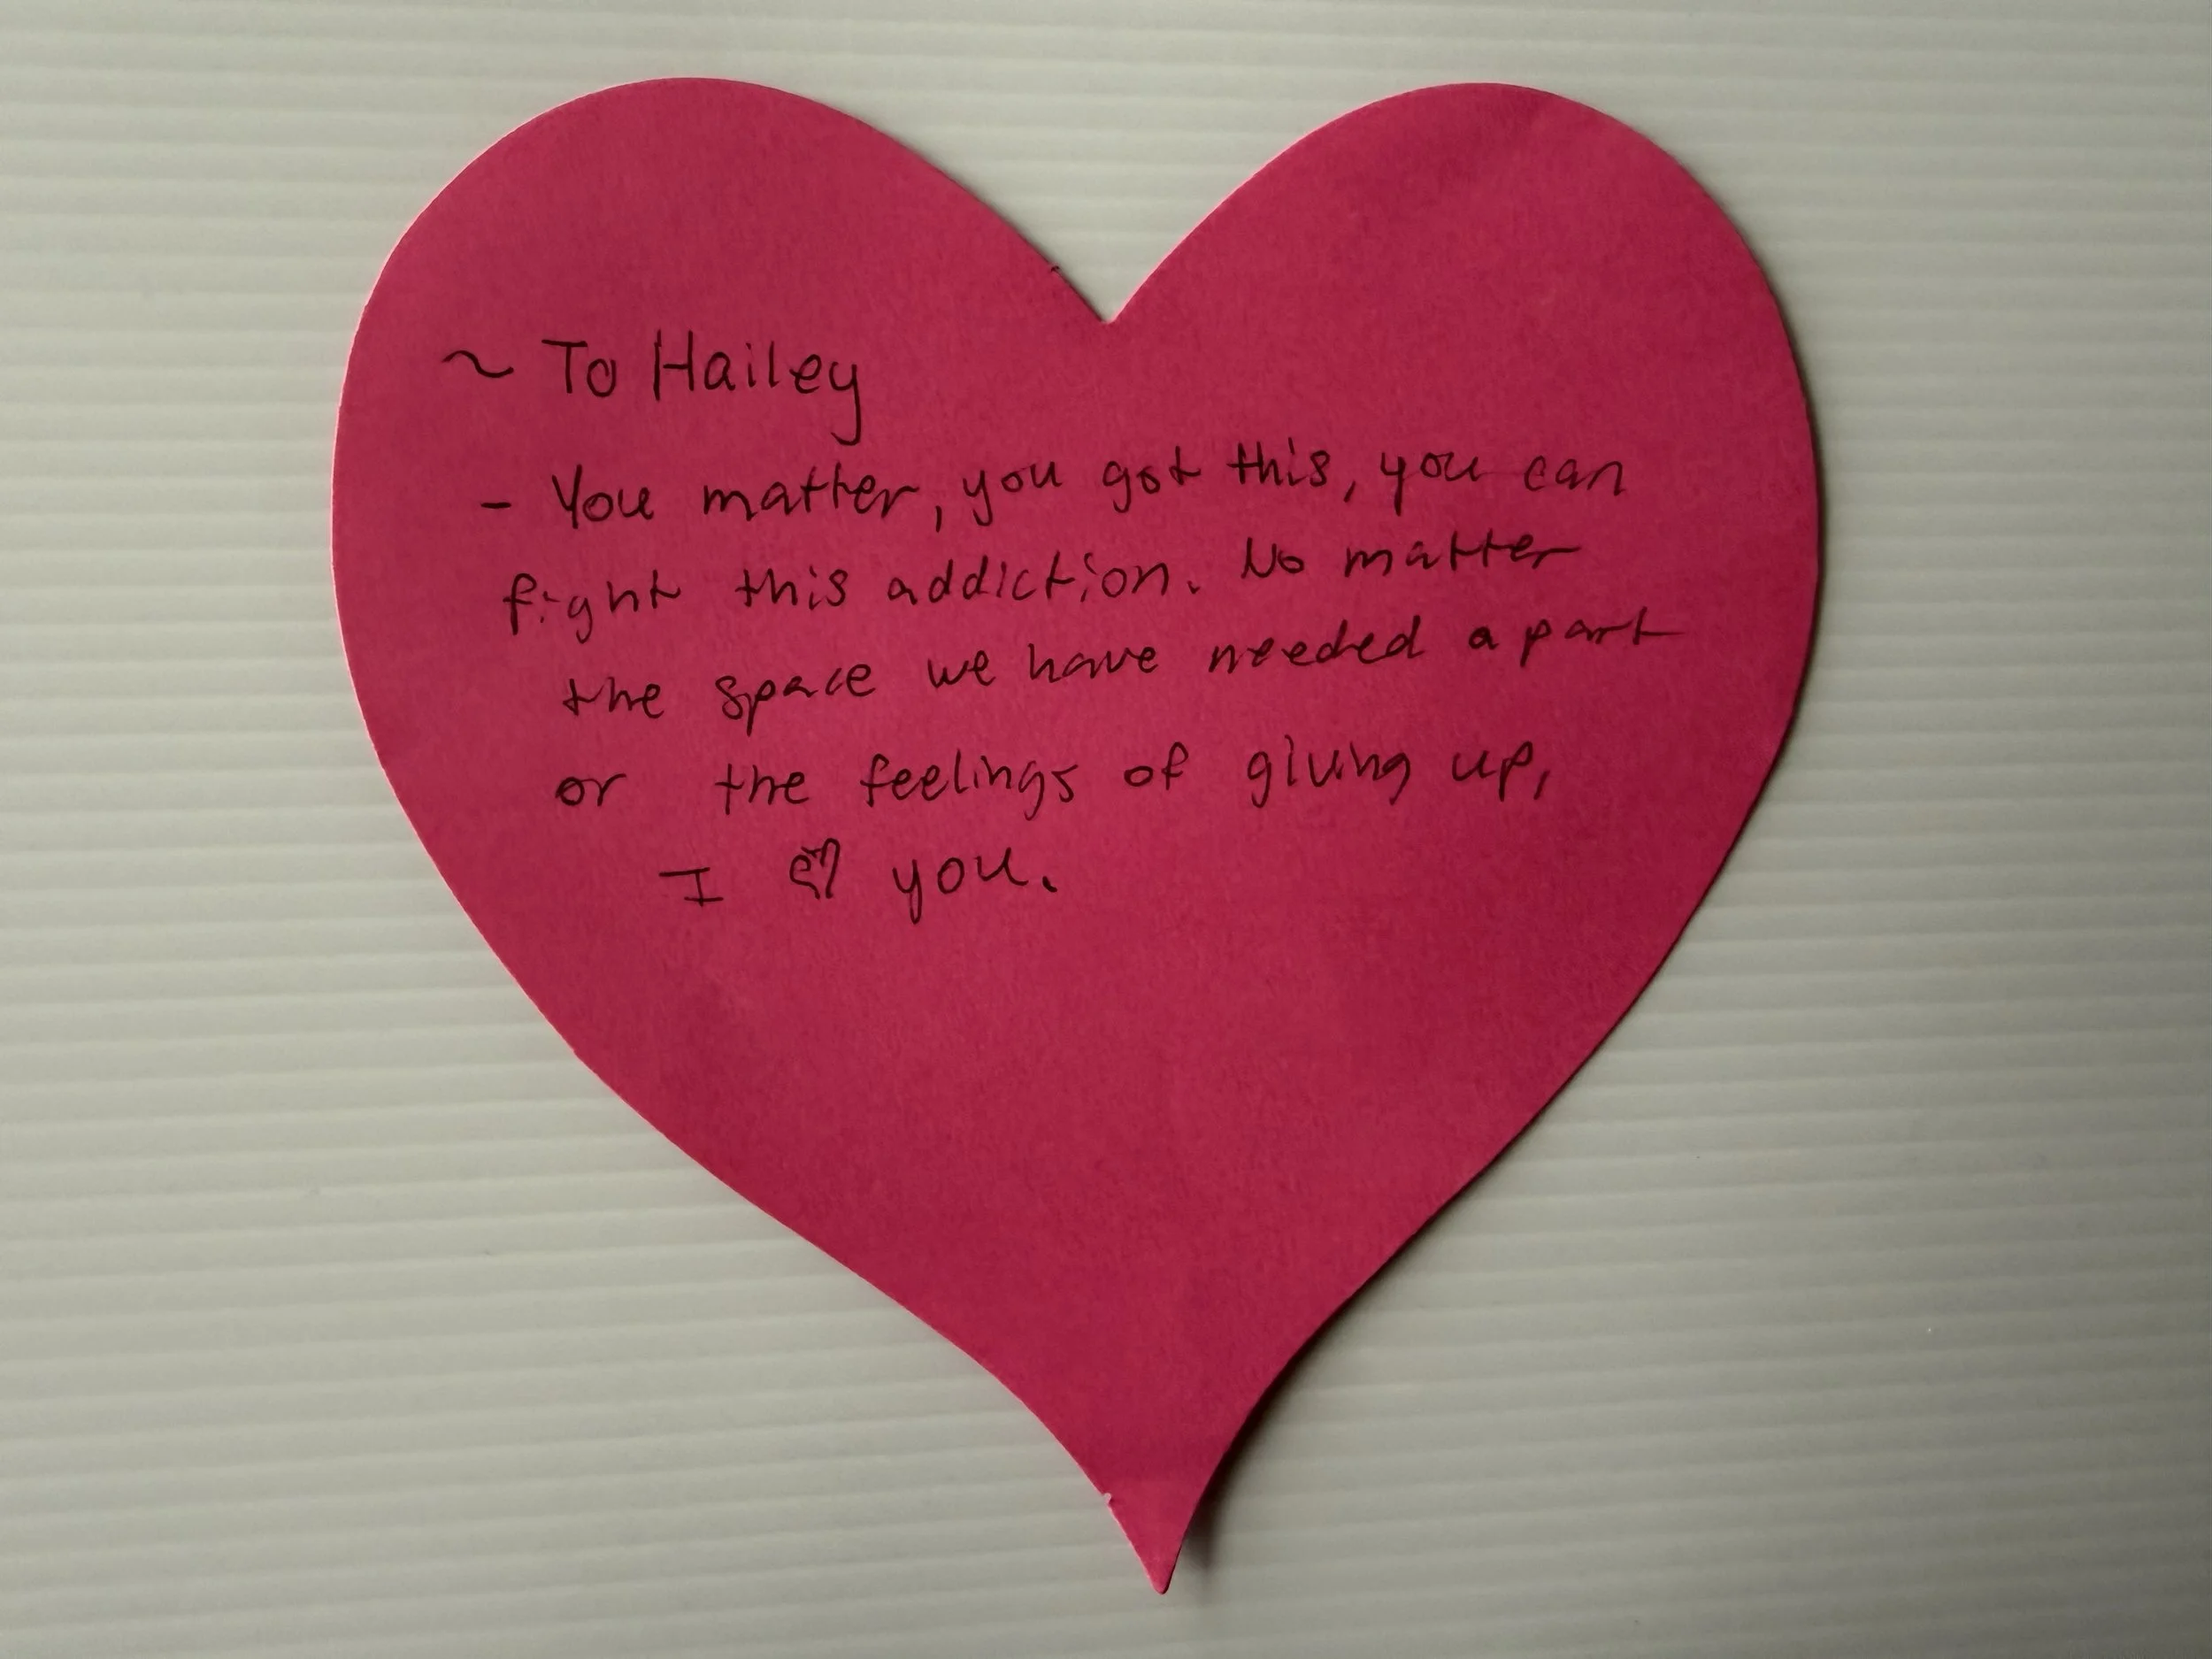 ~ To Hailey
- You matter, you got this, you can
fight this addiction. No matter
the space we have needed a part
or the feelings of giving up,
I ♡ you.